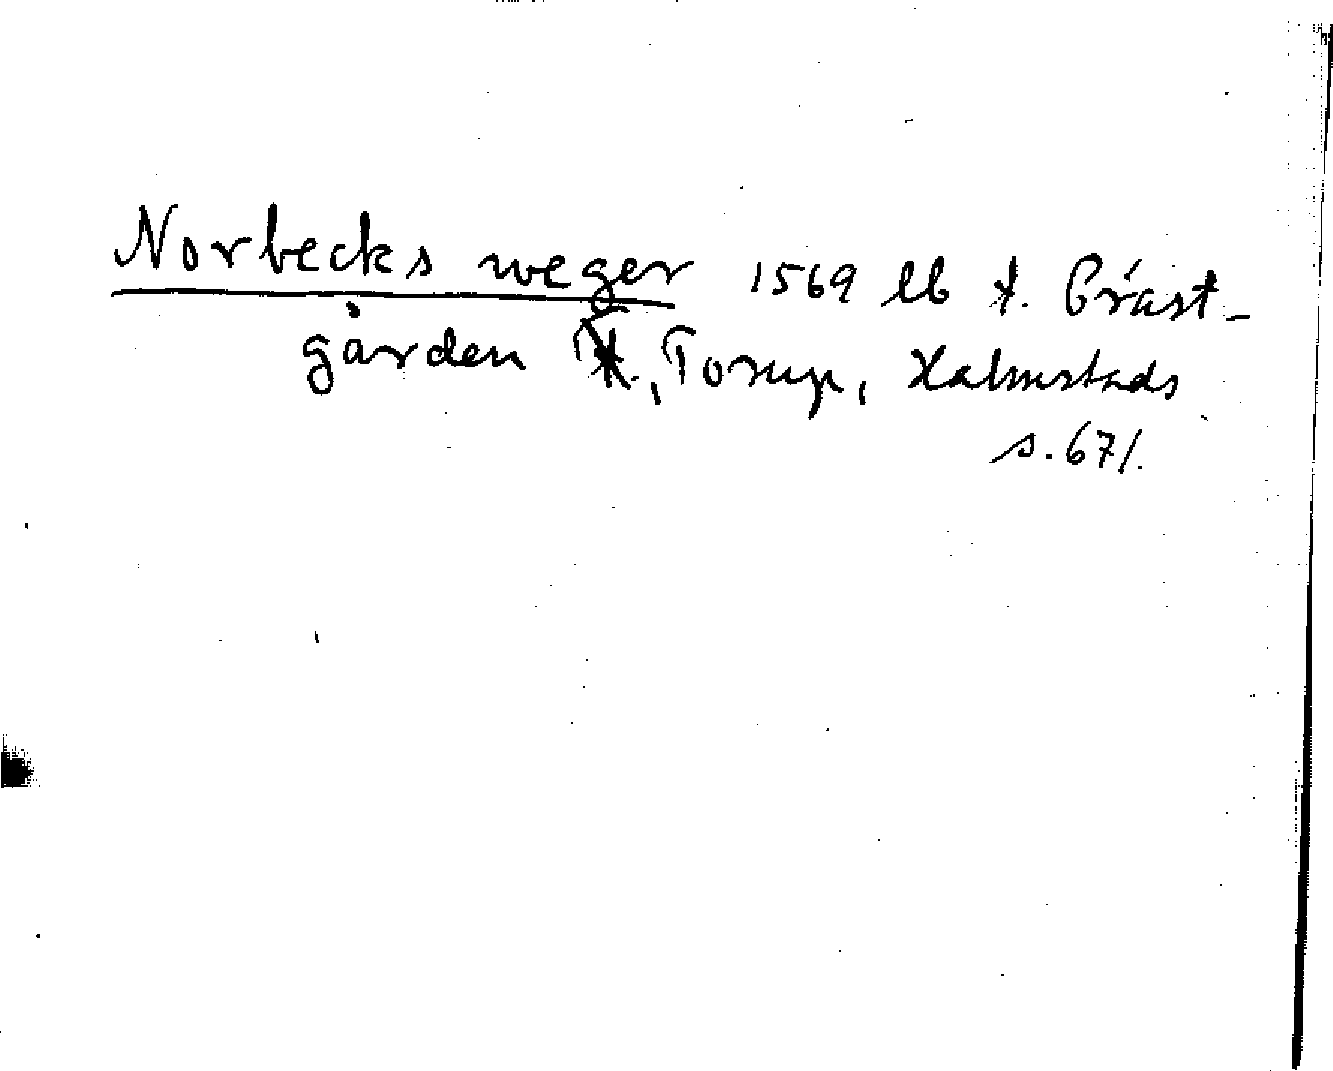 Norbecks weger 1569 lb t. Präst-
gården, Torup, Halmstads
s. 67/.